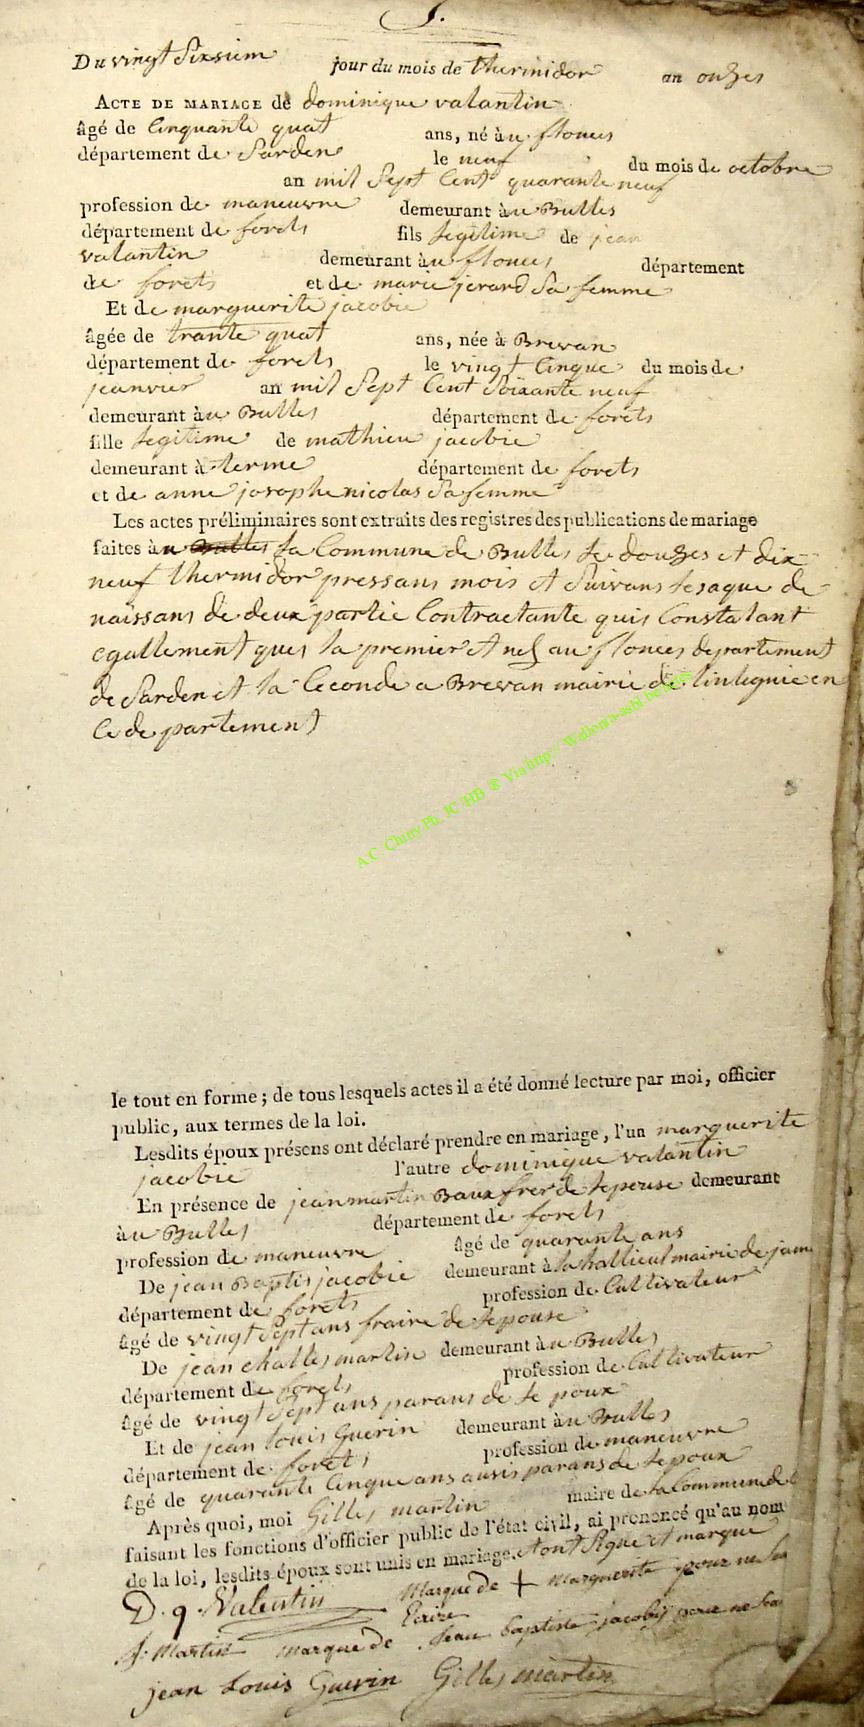 5.
Du vingt Sixsiem jour du mois de thermidor an onzes
ACTE DE MARIAGE de dominique valantin
âgé de Cinquante quat ans, né à u flones
département de Sarden le neuf du mois de octobre
an mil Sept Cent quarante neuf
profession de maneuvre demeurant à u Bulles
département de forets fils legitime de jean
valantin demeurant à u flones département
de forets et de marie jerard Sa femme
Et de marguerite jacobie
âgée de trante quat ans, née à Brevan
département de forets le vingt Cinque du mois de
jeanvier an mil Sept Cent Soixante neuf
demeurant à u Bulles département de forets
fille legitime de mathieu jacobie
demeurant à terme département de forets
et de anne josophe nicolas Sa femme
Les actes préliminaires sont extraits des registres des publications de mariage
faites à u Bulles la Commune de Bulles le douzes et dix
neuf thermidor pressans mois et Suivans lesaque de
naissans de deux partie Contractante quis Constatant
egallement ques la premier et nes au flones departement
de Sarden et la Ceconde a Brevan mairie de tintegnie en
Ce departement
A.C. Chiny Ph. JC /HB ® Via http:// Wallonia-asbl.be
le tout en forme ; de tous lesquels actes il a été donné lecture par moi, officier
public, aux termes de la loi.
Lesdits époux présens ont déclaré prendre en mariage, l'un marguerite
jacobie l'autre dominique valantin
En présence de jean martin Baux frer de lepouse demeurant
à u Bulles département de forets
profession de maneuvre âgé de quarante ans
De jean Baptis jacobie demeurant à la hallieul mairie de jam
département de forets profession de Cultivateur
âgé de vingt Sept ans fraire de lepouse
De jean challes martin demeurant à u Bulles
département de forets profession de Cultivateur
âgé de vingt Sept ans parans de le poux
Et de jean louis Guerin demeurant à u Bulles
département de forets profession de maneuvre
âgé de quarante Cinque ans ausis parans de lepoux
Après quoi, moi Gilles martin maire de la Commune de
faisant les fonctions d'officier public de l'état civil, ai prononcé qu'au nom
de la loi, lesdits époux sont unis en mariage. et ont Signe et marque
D. q. Valentin Marque de + Marguerite pour ne
Ecrire
J. Martin marque de Jean baptiste jacoby pour ne
jean Louis Guerin Gilles martin